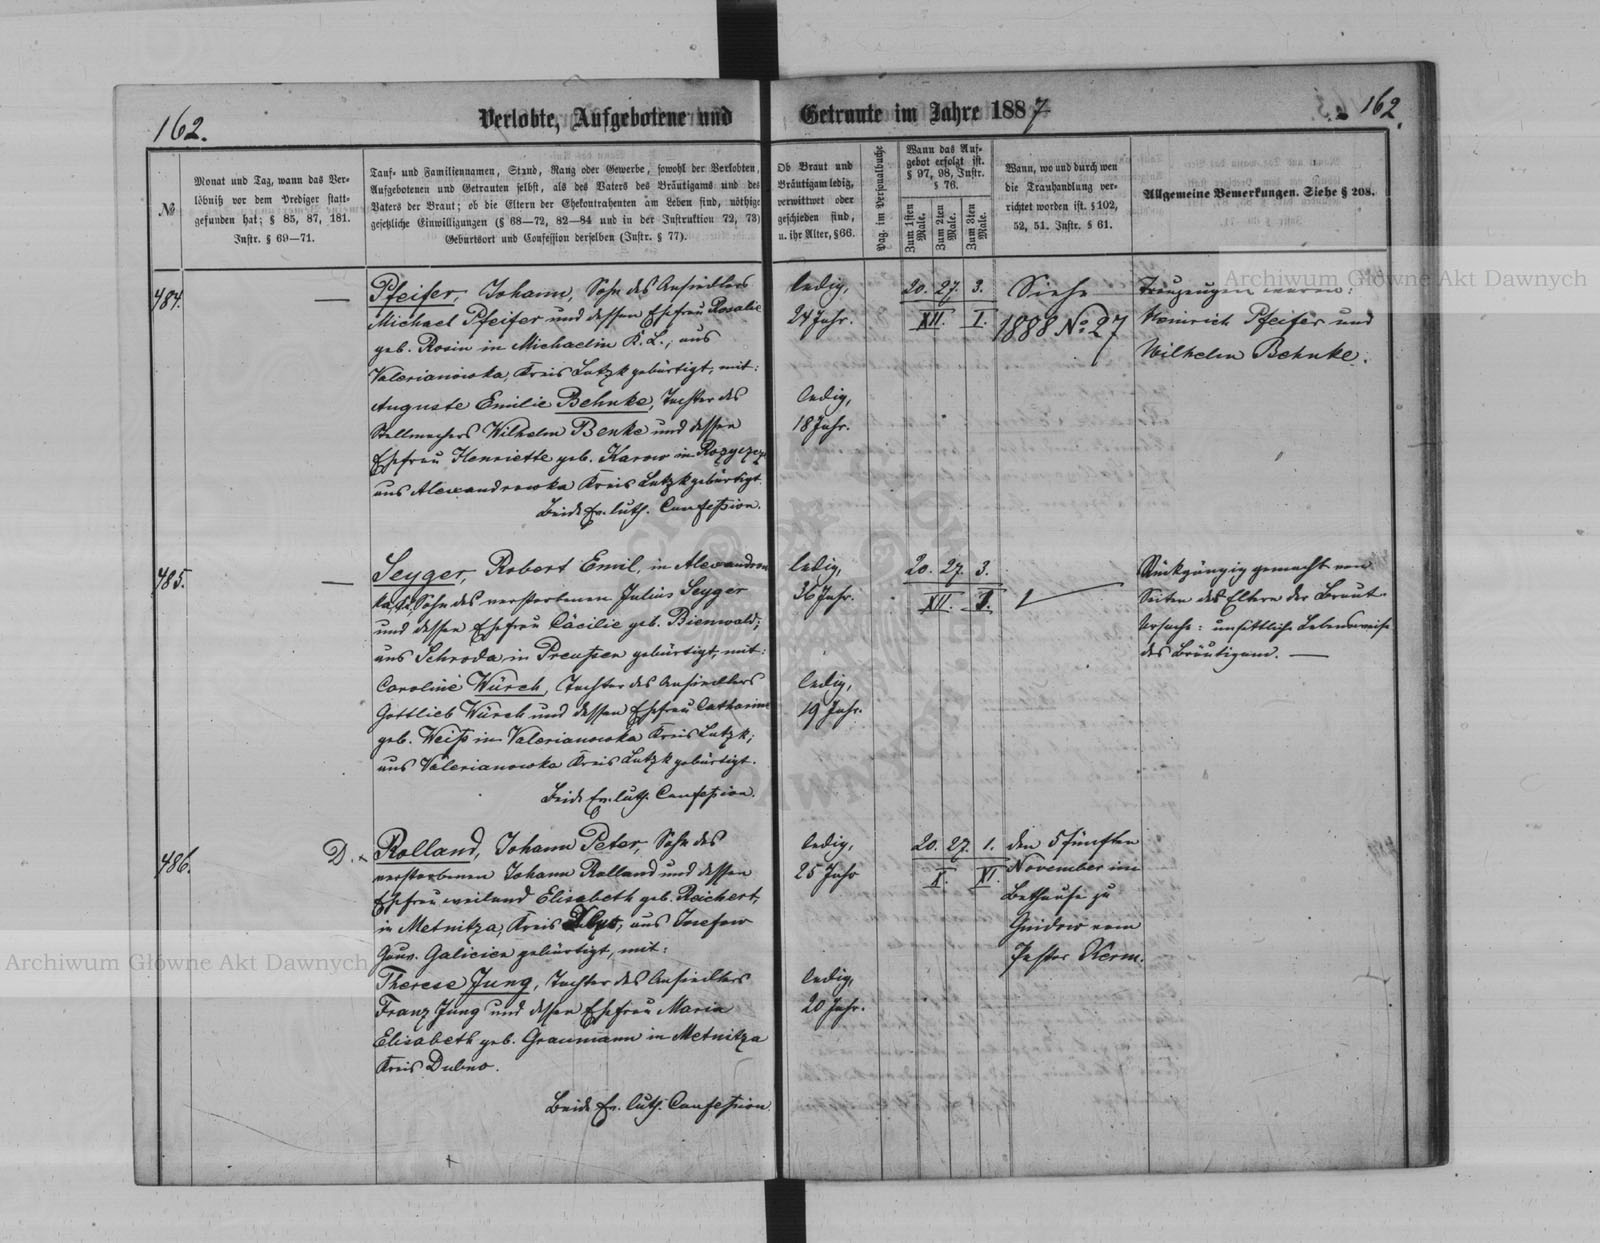 162.
Verlobte, Aufgebotene und Getraute im Jahre 1887
162.
№
Monat und Tag, wann das Ver-
löbniß vor dem Prediger statt-
gefunden hat; § 85, 87, 181.
Instr. § 69—71.
Tauf- und Familiennamen, Stand, Rang oder Gewerbe, sowohl der Verlobten,
Aufgebotenen und Getrauten selbst, als des Vaters des Bräutigams und des
Vaters der Braut; ob die Eltern der Ehekontrahenten am Leben sind, nöthige
gesetzliche Einwilligungen (§ 68—72, 82—84 und in der Instruktion 72, 73)
Geburtsort und Confession derselben (Instr. § 77).
Ob Braut und
Bräutigam ledig,
verwittwet oder
geschieden sind,
u. ihr Alter, §66.
Pag. im Personalbuche
Wann das Auf-
gebot erfolgt ist.
§ 97, 98, Instr.
§ 76.
Zum 1sten Male.
Zum 2ten Male.
Zum 3ten Male.
Wann, wo und durch wen
die Trauhandlung ver-
richtet worden ist. § 102,
52, 51. Instr. § 61.
Allgemeine Bemerkungen. Siehe § 208.
484.
—
Pfeifer, Johann, Sohn des Ansiedlers
Michael Pfeifer und dessen Ehefrau Rosalie
geb. Rosin in Michaelin K. L., aus
Valerianowka, Kreis Lutzk gebürtigt, mit:
Auguste Emilie Behnke, Tochter des
Stellmachers Wilhelm Benke und dessen
Ehefrau Henriette geb. Karow in
aus Alexandrowka Kreis Lutzk gebürtigt.
Beide Ev. luth. Confession.
ledig,
24 Jahr.
ledig,
18 Jahr.
20. 27. 3.
XII. I.
Siehe
1888 No 27
Trauzeugen waren:
Heinrich Pfeifer und
Wilhelm Behnke.
485.
—
Seyger, Robert Emil, in Alexandrow
ka, Sohn des verstorbenen Julius Seyger
und dessen Ehefrau Cäcilie geb. Bienwald;
aus Schroda in Preußen gebürtigt, mit:
Caroline Würch, Tochter des Ansiedlers
Gottlieb Würch und dessen Ehefrau Catharine
geb. Weiß in Valerianowka Kreis Lutzk;
aus Valerianowka Kreis Lutzk gebürtigt.
Beide Ev. luth. Confession.
ledig,
36 Jahr.
ledig,
19 Jahr.
20. 27. 3.
XII. I.
Rückgängig gemacht von
Seiten des Eltern der Braut.
Ursache: unsittliche Lebensweise
des Bräutigam. —
486.
D.
Rolland, Johann Peter, Sohn des
verstorbenen Johann Rolland und dessen
Ehefrau weiland Elisabeth geb. Reichert,
in Metnitza, Kreis aus Josefow
Gouv. Galicien gebürtigt, mit:
Therese Jung, Tochter des Ansiedlers
Franz Jung und dessen Ehefrau Maria
Elisabeth geb. Graumann in Metnitza
Kreis Dubno.
Beide Ev. luth. Confession
ledig,
25 Jahr
ledig,
20 Jahr.
20. 27. 1.
X. XI.
den 5 fünften
November im
Bethause zu
vom
Pastor Kerm.
Archiwum Główne Akt Dawnych
Archiwum Główne Akt Dawnych